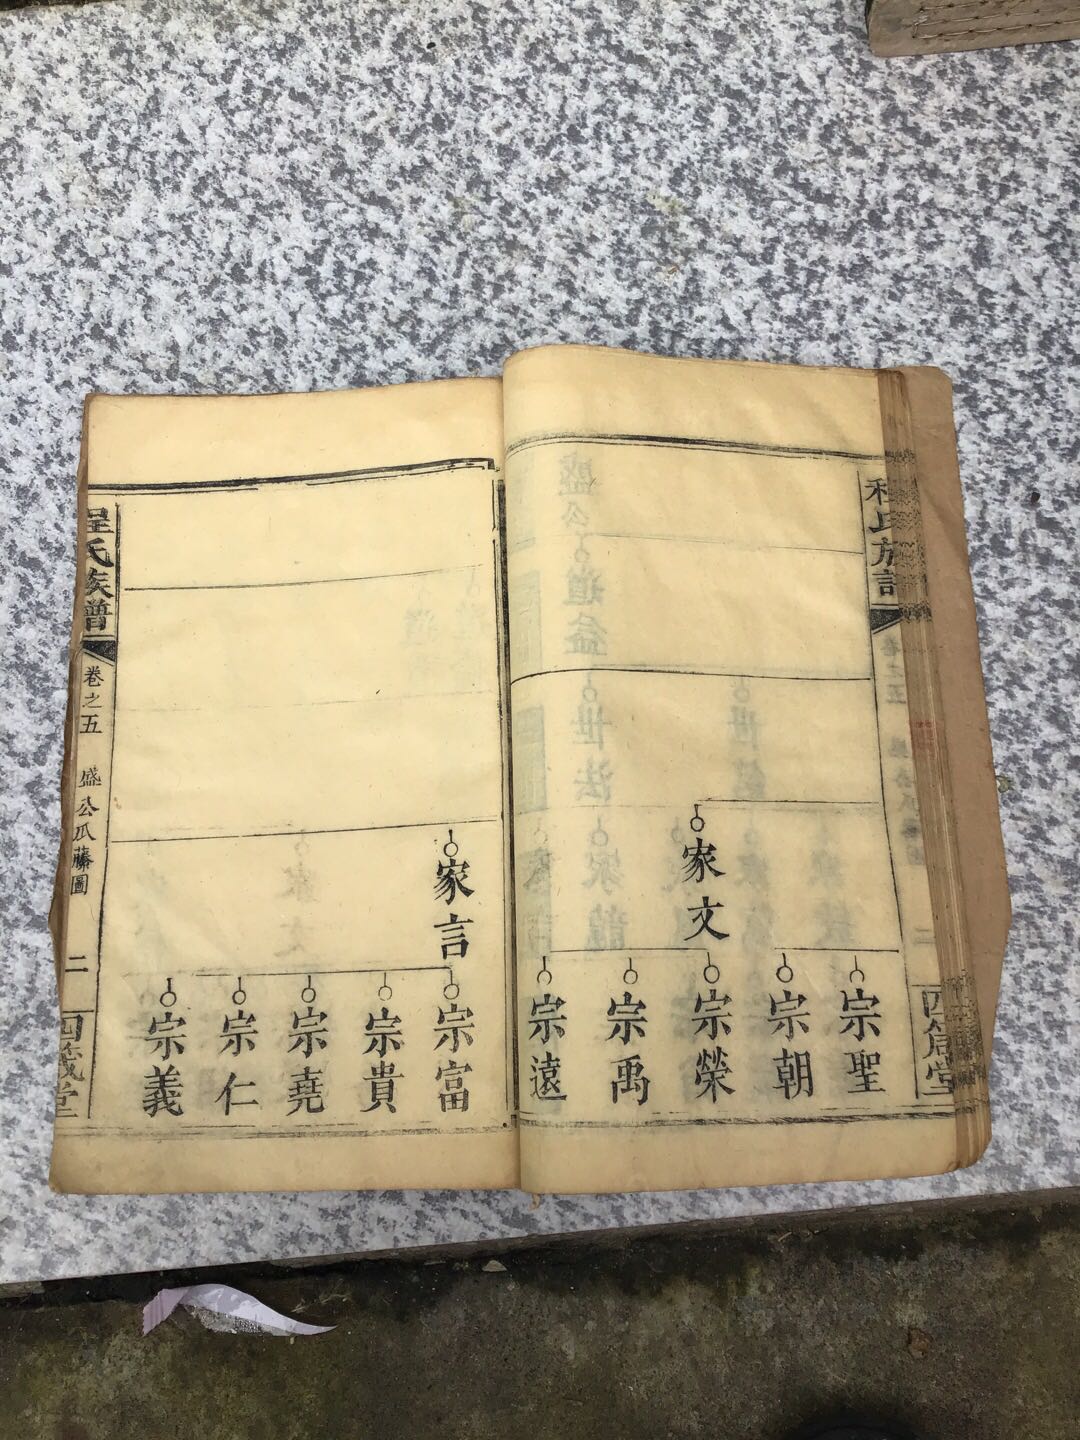 程氏族譜
卷之五
家文
宗聖
宗朝
宗榮
宗禹
宗遠
家言
宗富
宗貴
宗堯
宗仁
宗義
程氏族譜
卷之五
盛公瓜藤圖
二
四箴堂